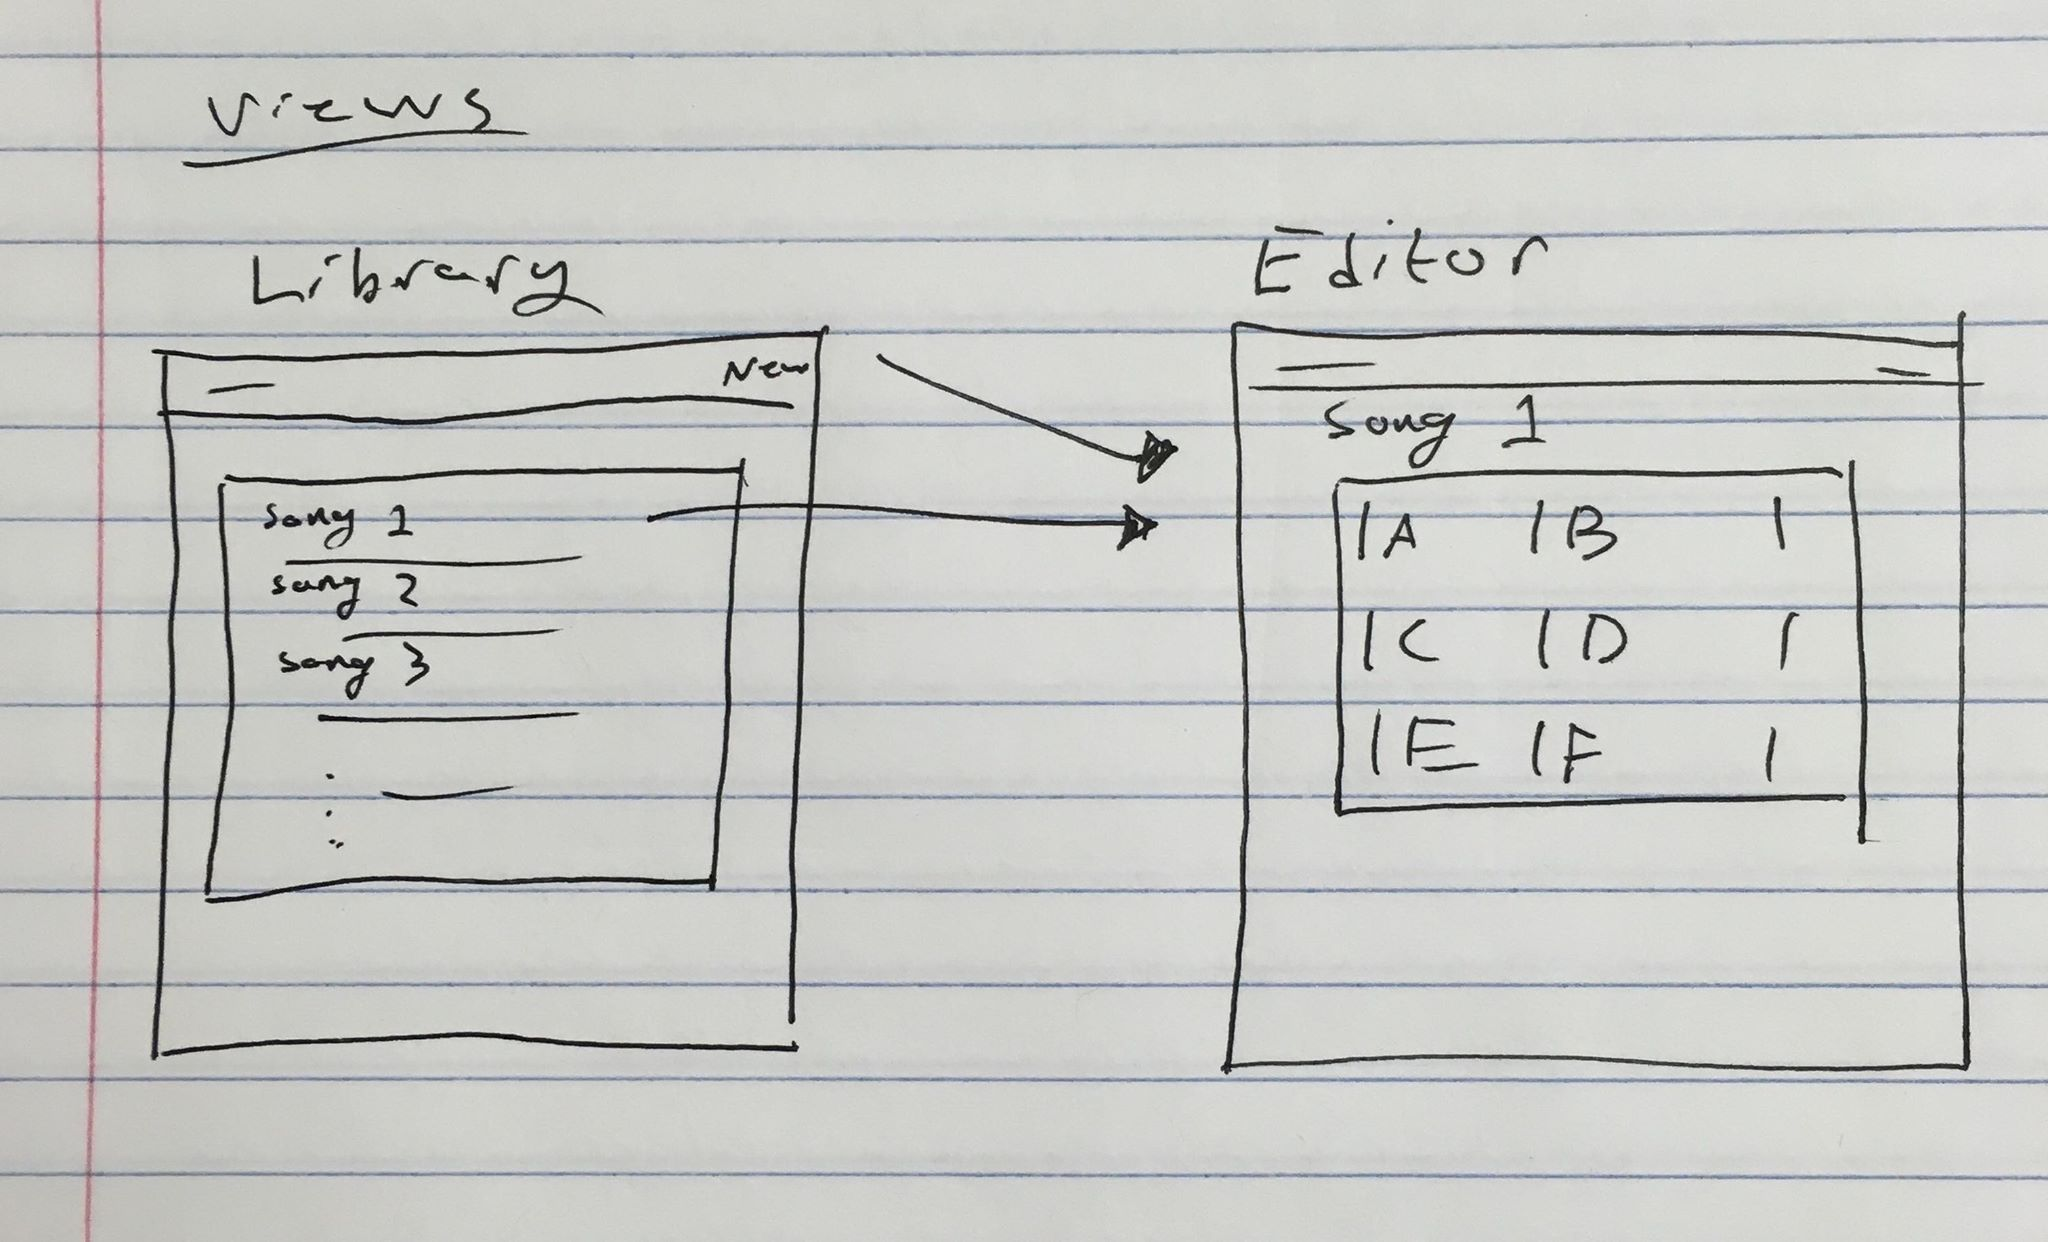 Views
Library
New
Song 1
Song 2
Song 3
Editor
Song 1
| A | B |
| C | D |
| E | F |